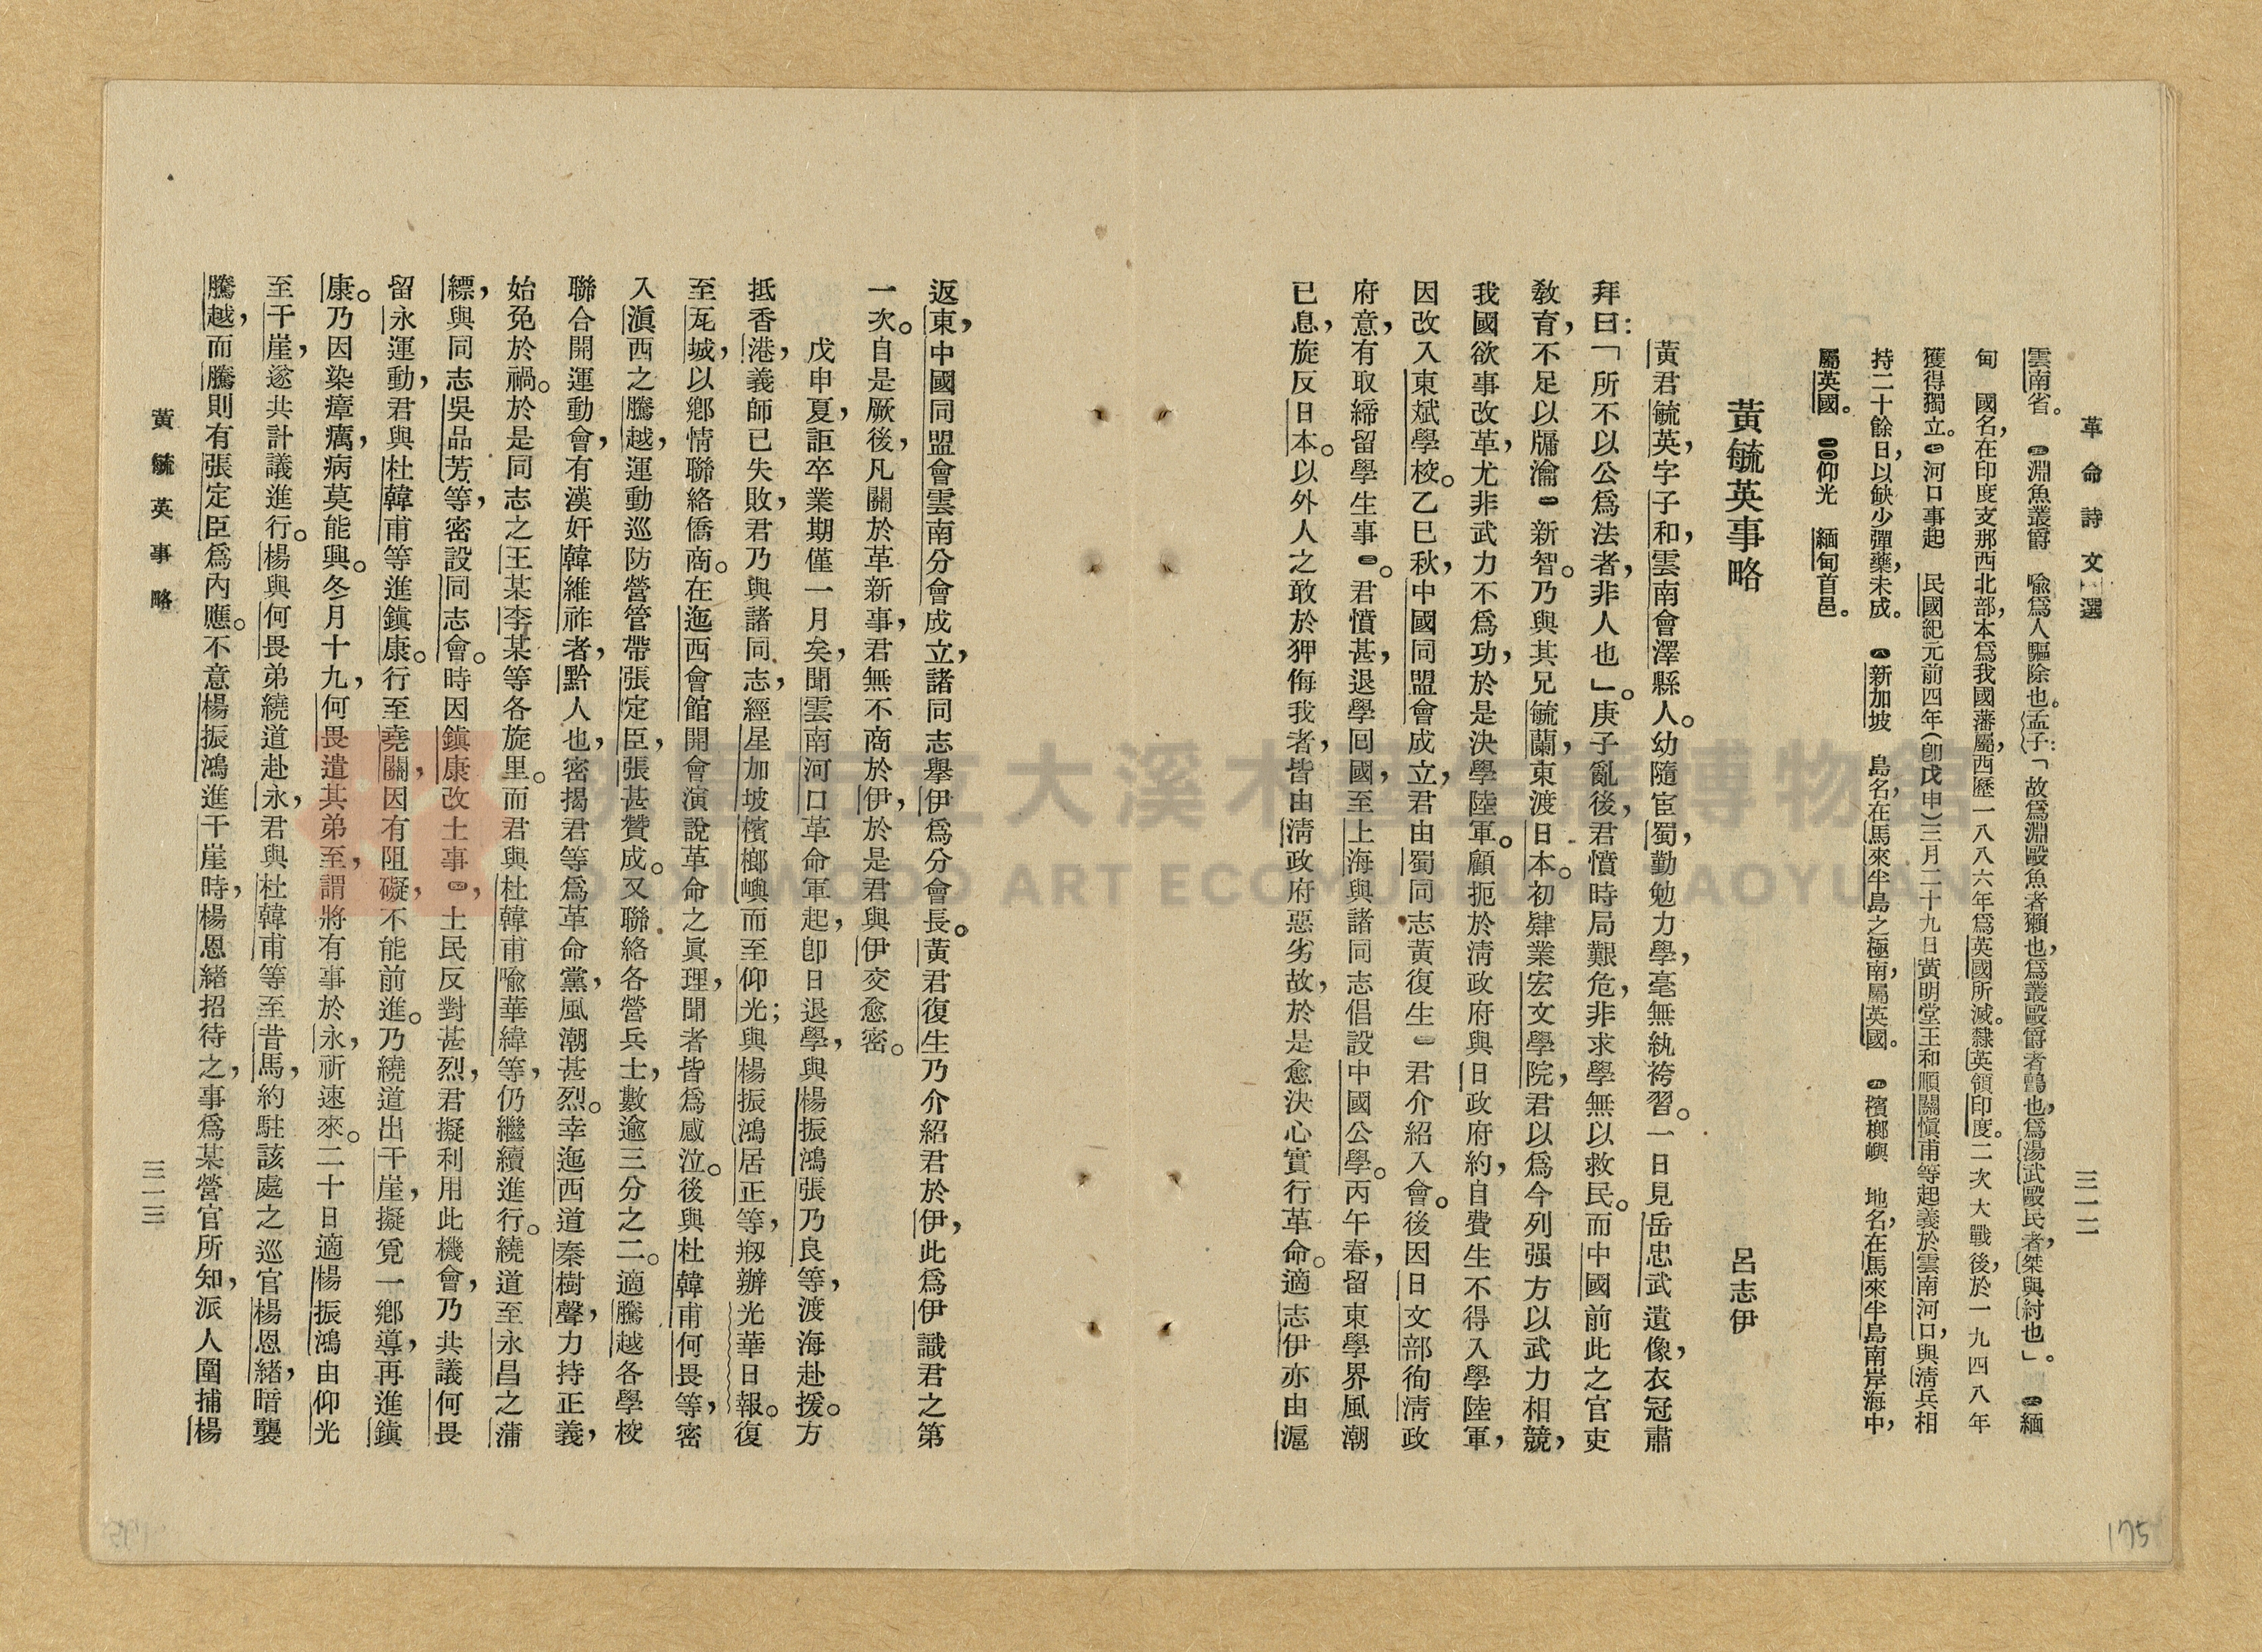 革命詩文選
三一二
雲南省。㊄淵魚叢爵　喩爲人驅除也。孟子：「故爲淵毆魚者獺也，爲叢毆爵者鸇也，爲湯武毆民者，桀與紂也」。㊅緬
甸　國名，在印度支那西北部，本爲我國藩屬，西歷一八八六年爲英國所滅。隸英領印度。二次大戰後，於一九四八年
獲得獨立。㊆河口事起　民國紀元前四年（卽戊申）三月二十九日黃明堂王和順關愼甫等起義於雲南河口，與淸兵相
持二十餘日，以缺少彈藥，未成。㊇新加坡　島名，在馬來半島之極南，屬英國。㊈檳榔嶼　地名，在馬來半島南岸海中，
屬英國。㊀〇仰光　緬甸首邑。
黃毓英事略
呂志伊
黃君毓英，字子和，雲南會澤縣人。幼隨宦蜀，勤勉力學，毫無紈袴習。一日見岳忠武遺像，衣冠肅
拜曰：「所不以公爲法者，非人也」。庚子亂後，君憤時局艱危，非求學無以救民。而中國前此之官吏
敎育，不足以牖瀹㊀新智。乃與其兄毓蘭，東渡日本。初肄業宏文學院，君以爲今列强方以武力相競，
我國欲事改革，尤非武力不爲功，於是決學陸軍。顧扼於淸政府與日政府約，自費生不得入學陸軍，
因改入東斌學校。乙巳秋，中國同盟會成立，君由蜀同志黃復生㊁君介紹入會。後因日文部徇淸政
府意，有取締留學生事㊂。君憤甚，退學囘國，至上海與諸同志倡設中國公學。丙午春，留東學界風潮
已息，旋反日本。以外人之敢於狎侮我者，皆由淸政府惡劣故，於是愈決心實行革命。適志伊亦由滬
返東，中國同盟會雲南分會成立，諸同志舉伊爲分會長。黃君復生乃介紹君於伊，此爲伊識君之第
一次。自是厥後，凡關於革新事，君無不商於伊，於是君與伊交愈密。
戊申夏，詎卒業期僅一月矣，聞雲南河口革命軍起，卽日退學，與楊振鴻張乃良等，渡海赴援。方
抵香港，義師已失敗，君乃與諸同志，經星加坡檳榔嶼而至仰光；與楊振鴻居正等，剏辦光華日報。復
至瓦城，以鄕情聯絡僑商。在迤西會館開會演說革命之眞理，聞者皆爲感泣。後與杜韓甫何畏等，密
入滇西之騰越，運動巡防營管帶張定臣，張甚贊成。又聯絡各營兵士，數逾三分之二。適騰越各學校
聯合開運動會，有漢奸韓維祚者，黔人也，密揭君等爲革命黨，風潮甚烈。幸迤西道秦樹聲，力持正義，
始免於禍。於是同志之王某李某等各旋里。而君與杜韓甫喩華緯等，仍繼續進行。繞道至永昌之蒲
縹，與同志吳品芳等，密設同志會。時因鎭康改土事㊃，土民反對甚烈，君擬利用此機會，乃共議何畏
留永運動，君與杜韓甫等進鎭康。行至堯關，因有阻礙，不能前進。乃繞道出干崖，擬覓一鄕導，再進鎭
康。乃因染瘴癘，病莫能興。冬月十九，何畏遣其弟至，謂將有事於永，祈速來。二十日適楊振鴻由仰光
至干崖，遂共計議進行。楊與何畏弟繞道赴永，君與杜韓甫等至昔馬，約駐該處之巡官楊恩緒，暗襲
騰越，而騰則有張定臣爲內應。不意楊振鴻進干崖時，楊恩緒招待之，事爲某營官所知，派人圍捕楊
黃毓英事略
三一三
175
桃園市立大溪木藝生態博物館
DAXI WOOD ART ECOMUSEUM TAOYUAN